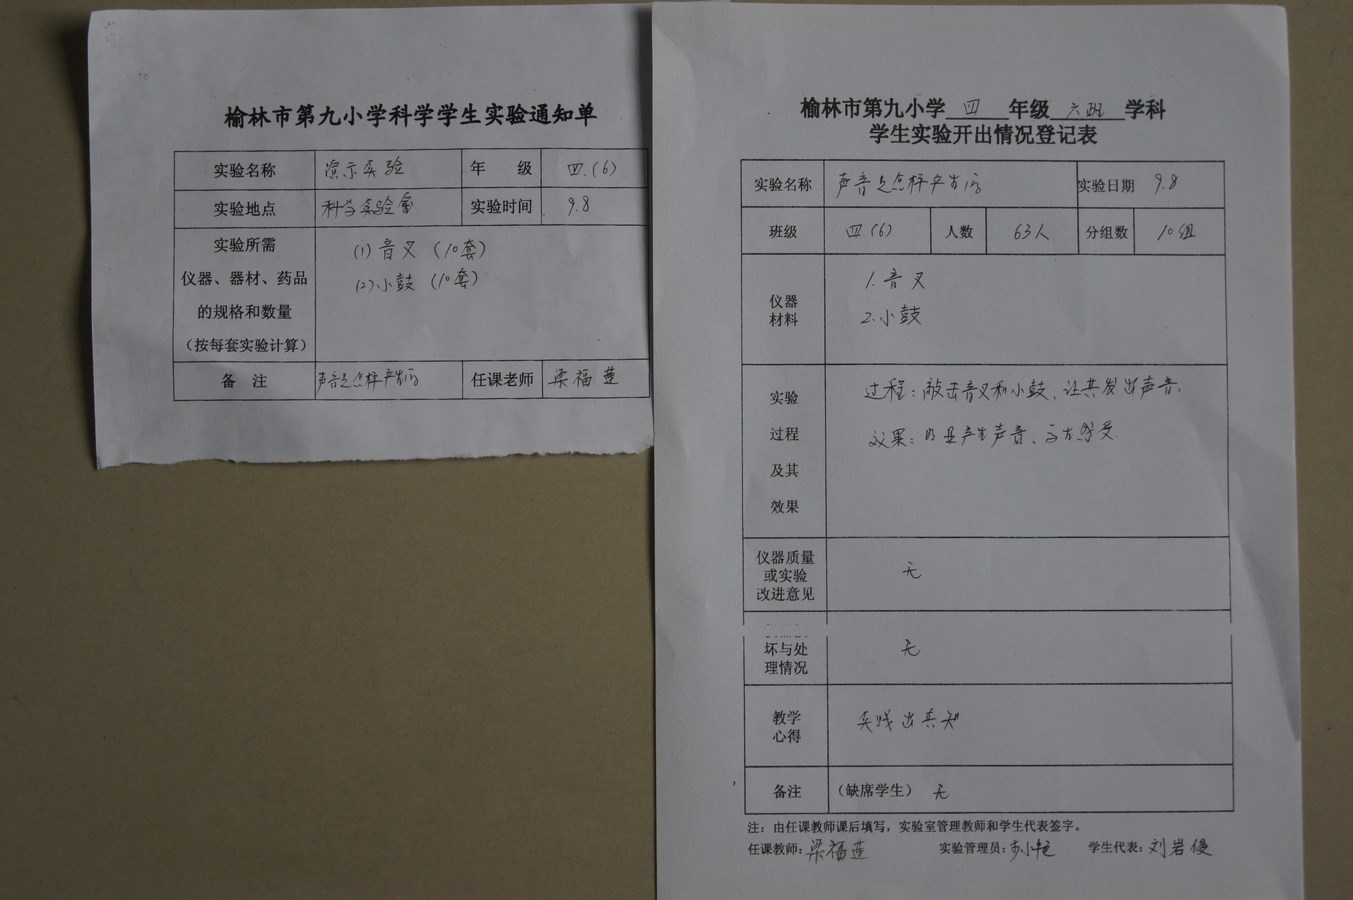 榆林市第九小学科学学生实验通知单
实验名称 演示实验 年 级 四.(6)
实验地点 科学实验室 实验时间 9.8
实验所需
仪器、器材、药品
的规格和数量
(按每套实验计算)
(1) 音叉 (10套)
(2) 小鼓 (10套)
备 注 声音是怎样产生的 任课老师 梁福莲
榆林市第九小学 四 年级 学科
学生实验开出情况登记表
实验名称 声音是怎样产生的 实验日期 9.8
班级 四(6) 人数 63人 分组数 10组
仪器
材料
1. 音叉
2. 小鼓
实验
过程
及其
效果
过程: 敲击音叉和小鼓, 让其发出声音.
效果: 产生声音、
仪器质量
或实验
改进意见
无
坏与处
理情况
无
教学
心得
实践出真知
备注 (缺席学生) 无
注: 由任课教师课后填写, 实验室管理教师和学生代表签字。
任课教师: 梁福莲 实验管理员: 学生代表: 刘岩俊